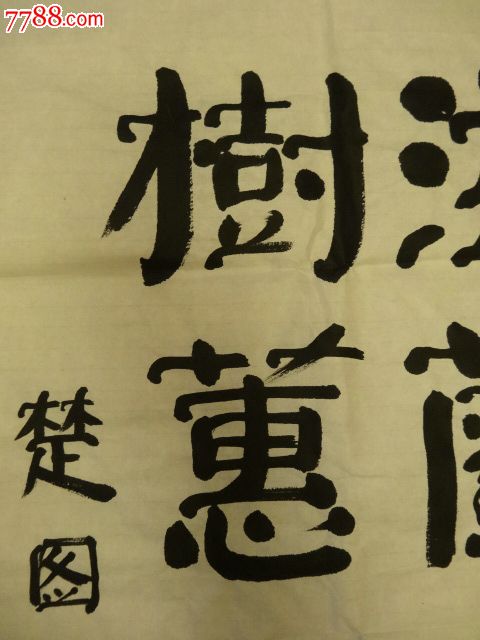 7788.com
樹蕙
楚图